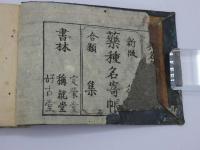 新版
藥種名寄帳
合類 集
書林
定榮堂
稱觥堂
好古堂